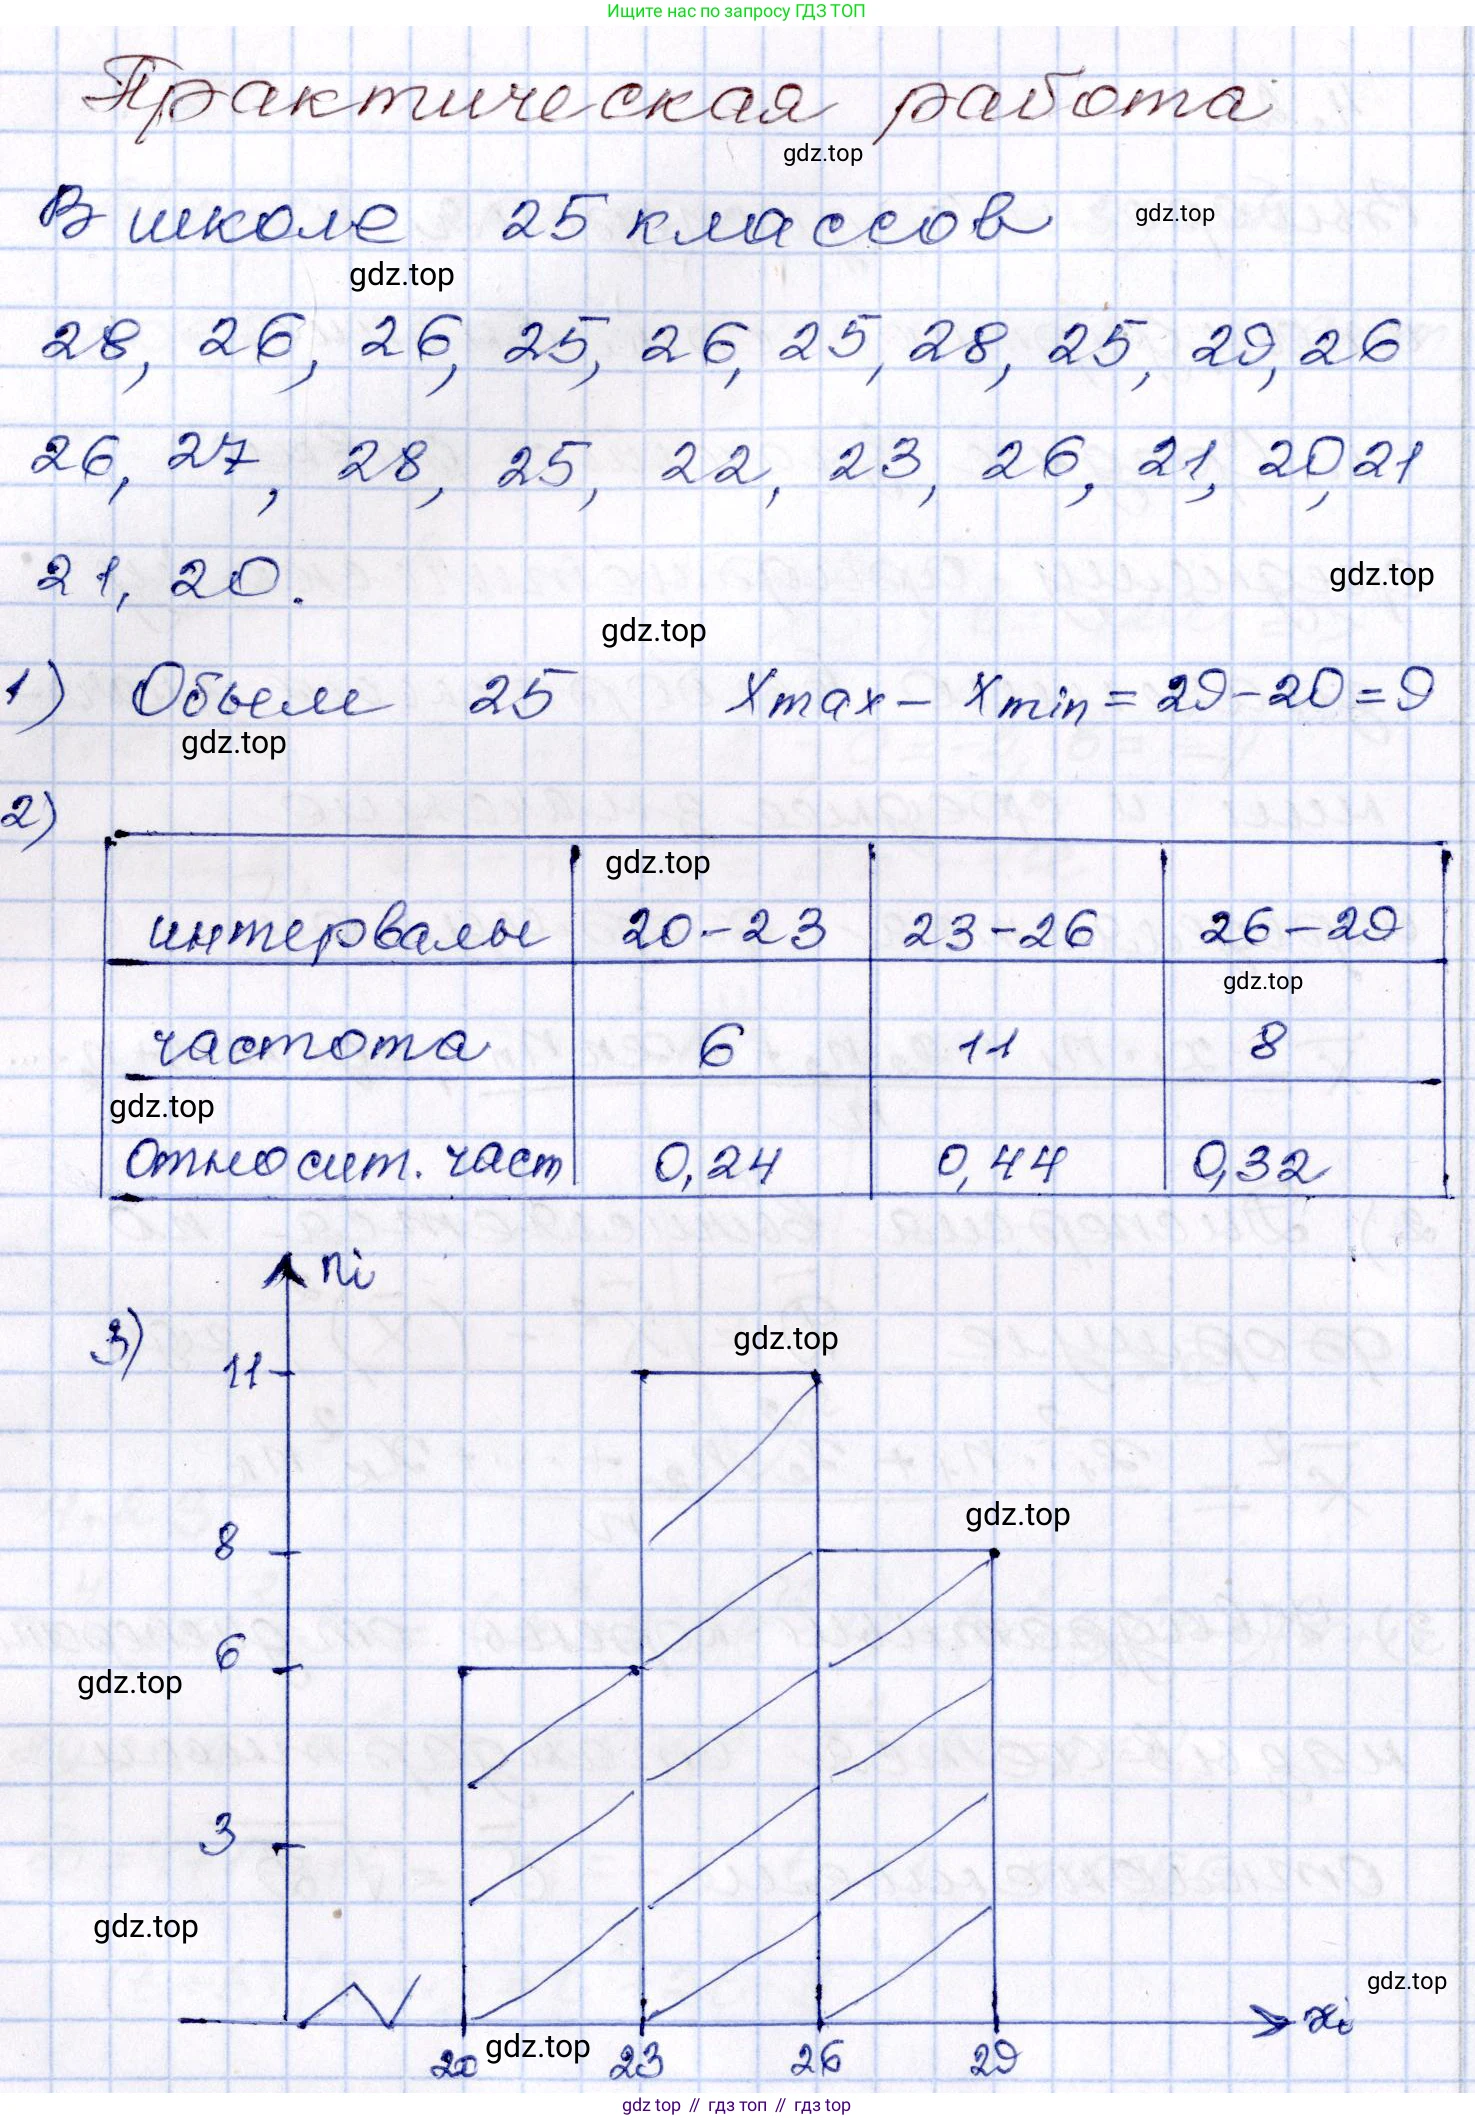 Ищите нас по запросу ГДЗ ТОП
Практическая работа
gdz.top
В школе 25 классов
gdz.top
gdz.top
28, 26, 26, 25, 26, 25, 28, 25, 29, 26
26, 27, 28, 25, 22, 23, 26, 21, 20, 21
21, 20.
gdz.top
gdz.top
1) Объем 25 xmax - xmin = 29-20=9
gdz.top
2)
gdz.top
интервалы 20-23 23-26 26-29
gdz.top
частота 6 11 8
gdz.top
относит. част 0,24 0,44 0,32
ni
3)
gdz.top
11
gdz.top
8
6
gdz.top
3
gdz.top
gdz.top
xi
gdz.top
20 23 26 29
gdz.top // гдз топ // gdz.top